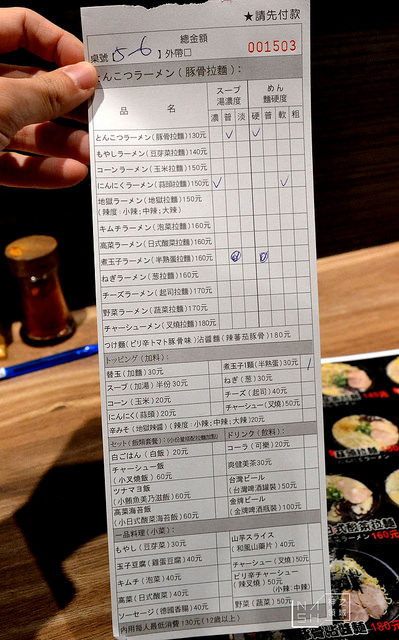 ★請先付款
總金額
桌號【5-6】外帶□
001503
とんこつラーメン(豚骨拉麵):
品 名
スープ 湯濃度
めん 麵硬度
濃 普 淡 硬 普 軟 粗
とんこつラーメン(豚骨拉麵)130元
もやしラーメン(豆芽菜拉麵)140元
コーンラーメン(玉米拉麵)150元
にんにくラーメン(蒜頭拉麵)150元
地獄ラーメン(地獄拉麵)150元
(辣度:小辣;中辣;大辣)
キムチラーメン(泡菜拉麵)160元
高菜ラーメン(日式酸菜拉麵)160元
煮玉子ラーメン(半熟蛋拉麵)160元
ねぎラーメン(葱拉麵)160元
チーズラーメン(起司拉麵)170元
野菜ラーメン(蔬菜拉麵)170元
チャーシューメン(叉燒拉麵)180元
つけ麵(ピリ辛トマト豚骨味)沾醬麵(辣蕃茄豚骨)180元
トッピング(加料):
替玉(加麵)30元
煮玉子1顆(半熟蛋)30元
スープ(加湯)半份30元
ねぎ(葱)30元
コーン(玉米)20元
チーズ(起司)40元
にんにく(蒜頭)20元
チャーシュー(叉燒)50元
辛みそ(地獄辣醬)(辣度:小辣;中辣;大辣)20元
セット(飯類套餐):
ドリンク(飲料):
白ごはん(白飯)20元
コーラ(可樂)20元
チャーシュー飯
(小叉燒飯)60元
爽健美茶30元
ツナマヨ飯
(小鮪魚美乃滋飯)60元
台灣ビール
(台灣啤酒罐裝)50元
高菜海苔飯
(小日式酸菜海苔飯)60元
金牌ビール
(金牌啤酒瓶裝)100元
一品料理(小菜):
もやし(豆芽菜)30元
山芋スライス
(和風山藥片)40元
玉子豆腐(雞蛋豆腐)40元
チャーシュー(叉燒)50元
キムチ(泡菜)40元
ピリ辛チャーシュー
(辣叉燒)50元
(小辣;中辣)
高菜(日式酸菜)40元
ソーセージ(德國香腸)40元
野菜(蔬菜)50元
內用每人最低消費130元(12歲以上)
160元
180元